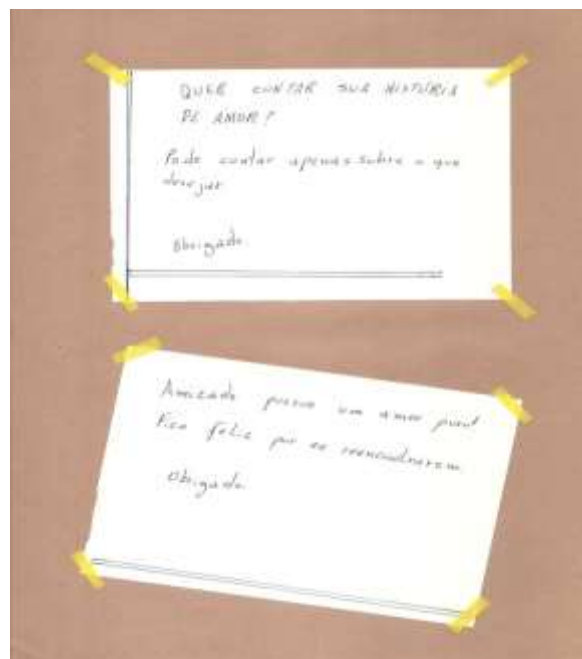 QUER CONTAR SUA HISTÓRIA
DE AMOR?
Pode contar apenas sobre o que
desejar
Obrigado.
Amizade possui um amor puro!
Fico feliz por se reencontrarem
Obrigado.